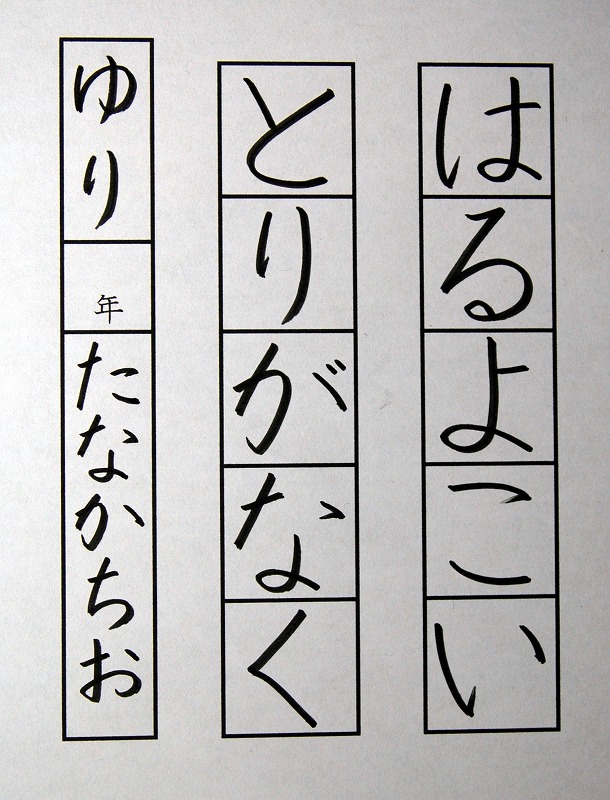 はるよこい
とりがなく
ゆり 年 たなかちお